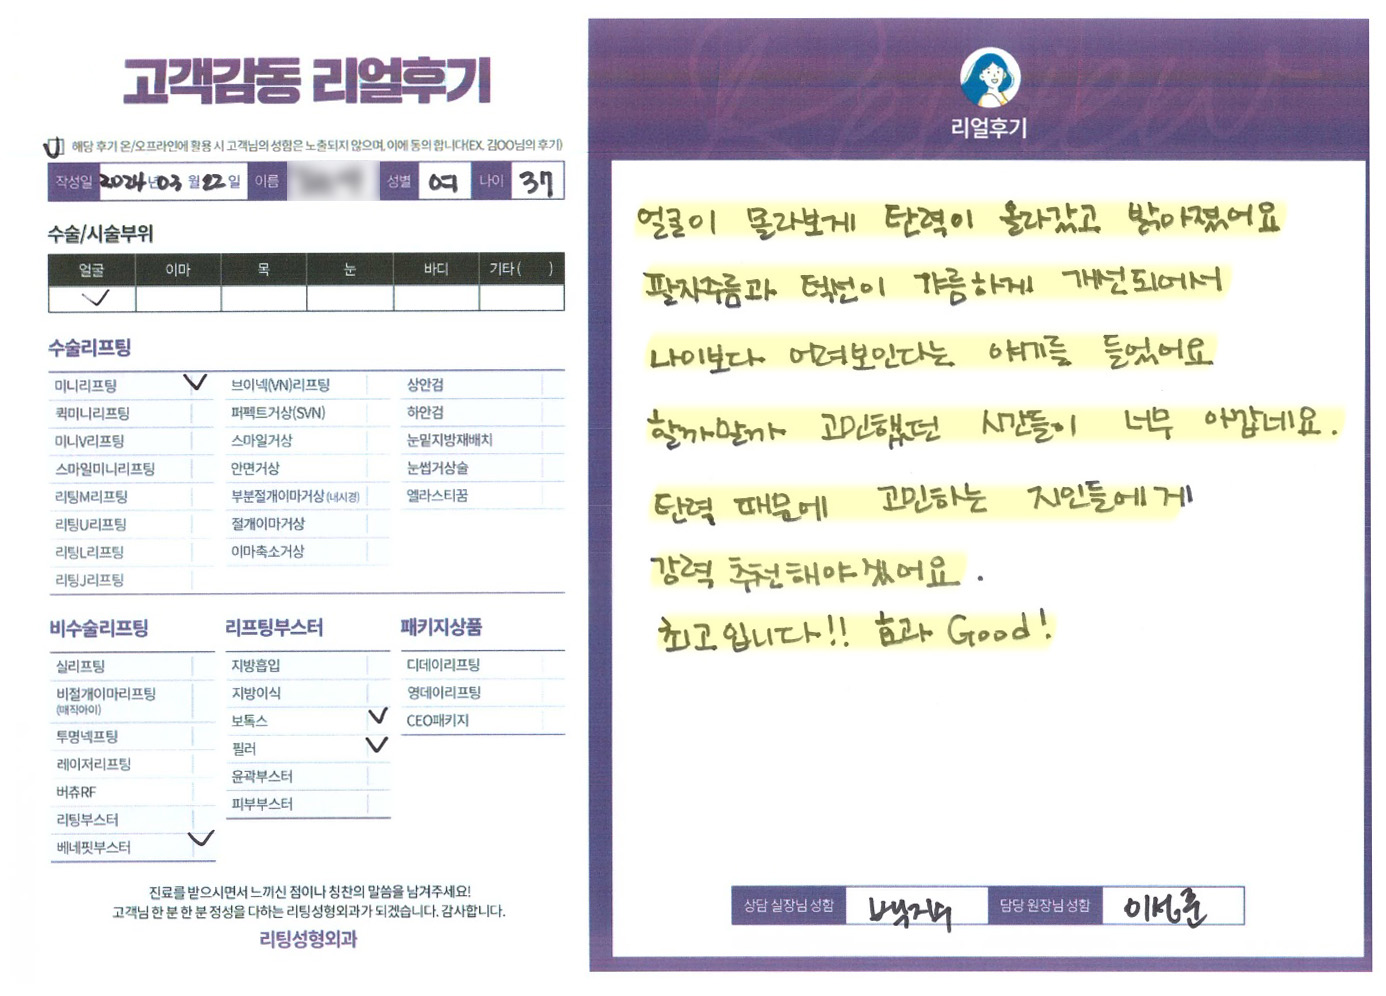 고객감동 리얼후기
해당 후기 온/오프라인에 활용 시 고객님의 성함은 노출되지 않으며, 이에 동의 합니다(EX. 김OO님의 후기)
작성일 2024년 03 월 22 일 이름 성별 여 나이 37
수술/시술부위
얼굴 이마 목 눈 바디 기타 ( )
수술리프팅
미니리프팅 브이넥(VN)리프팅 상안검
퀵미니리프팅 퍼펙트거상(SVN) 하안검
미니V리프팅 스마일거상 눈밑지방재배치
스마일미니리프팅 안면거상 눈썹거상술
리팅M리프팅 부분절개이마거상 (내시경) 엘라스티꿈
리팅U리프팅 절개이마거상
리팅L리프팅 이마축소거상
리팅J리프팅
비수술리프팅 리프팅부스터 패키지상품
실리프팅 지방흡입 디데이리프팅
비절개이마리프팅 지방이식 영데이리프팅
(매직아이) 보톡스 CEO패키지
투명넥프팅 필러
레이저리프팅 윤곽부스터
버츄RF 피부부스터
리팅부스터
베네핏부스터
진료를 받으시면서 느끼신 점이나 칭찬의 말씀을 남겨주세요!
고객님 한 분 한 분 정성을 다하는 리팅성형외과가 되겠습니다. 감사합니다.
리팅성형외과
리얼후기
얼굴이 몰라보게 탄력이 올라갔고 밝아졌어요
팔자주름과 턱선이 갸름하게 개선되어서
나이보다 어려보인다는 얘기를 들었어요
할까말까 고민했던 시간들이 너무 아깝네요.
탄력 때문에 고민하는 지인들에게
강력 추천해야겠어요.
최고입니다!! 효과 Good!
상담 실장님 성함 담당 원장님 성함